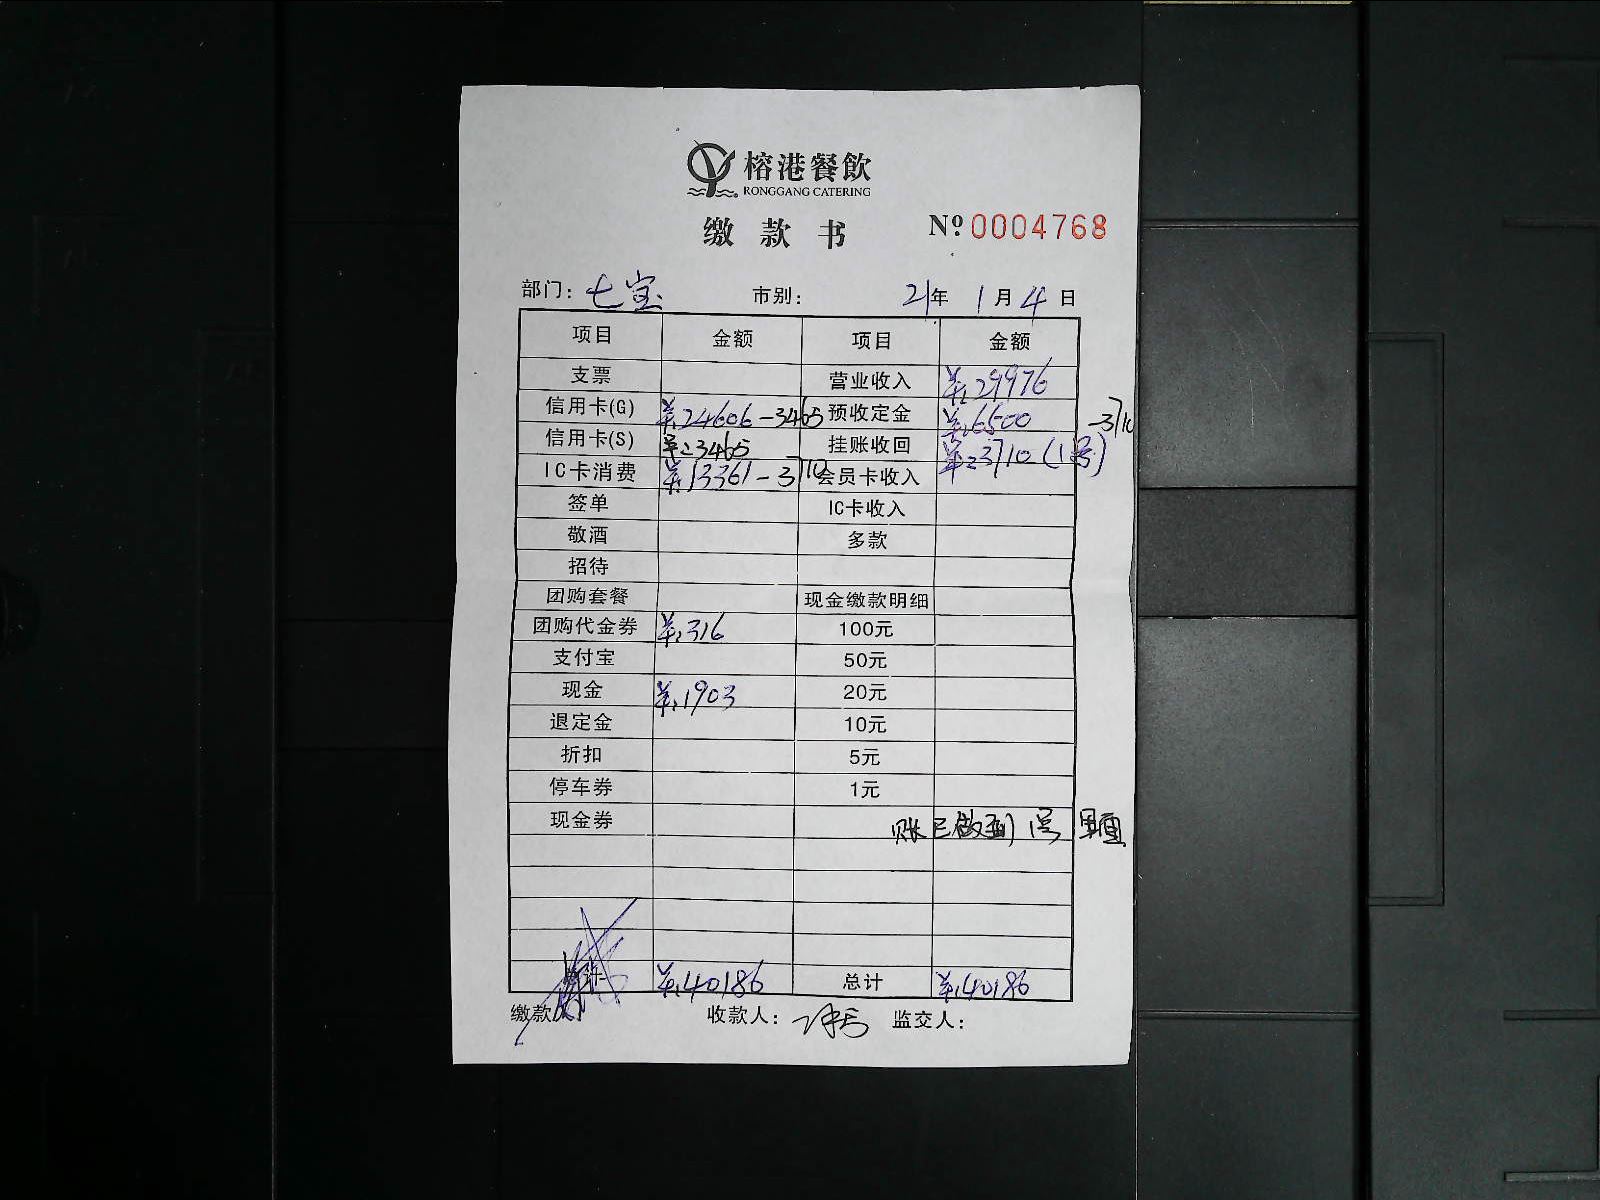 榕港餐飲
RONGGANG CATERING
缴款书 Nº 0004768
部门: 七宝 市别: 21年 1月 4日
项目 金额 项目 金额
支票 营业收入 ¥:29976
信用卡(G) ¥:24606-3465 预收定金 ¥:6500 -3710
信用卡(S) ¥:3465 挂账收回 ¥:3710(1号)
IC卡消费 ¥:13361-3710 会员卡收入
签单 IC卡收入
敬酒 多款
招待
团购套餐 现金缴款明细
团购代金券 ¥:316 100元
支付宝 50元
现金 ¥:1903 20元
退定金 10元
折扣 5元
停车券 1元
现金券 账已做到1号里面
¥:40186 总计 ¥:40186
缴款人 收款人: 监交人: